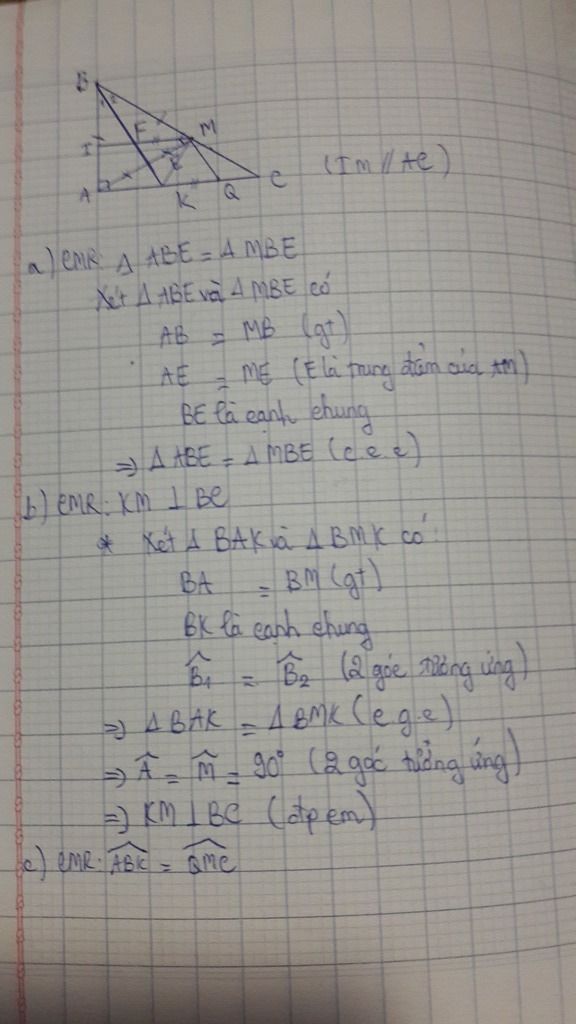 B
1 2
F M
I
E
A K Q C (IM // AC)
a) CMR Δ ABE = Δ MBE
Xét Δ ABE và Δ MBE có
AB = MB (gt)
AE = ME (E là trung điểm của AM)
BE là cạnh chung
=> Δ ABE = Δ MBE (c.c.c)
b) CMR: KM ⊥ BC
* Xét Δ BAK và Δ BMK có:
BA = BM (gt)
BK là cạnh chung
B̂₁ = B̂₂ (2 góc tương ứng)
=> Δ BAK = Δ BMK (c.g.c)
=> Â = M̂ = 90° (2 góc tương ứng)
=> KM ⊥ BC (đpcm)
c) CMR: ÂBK = Q̂MC